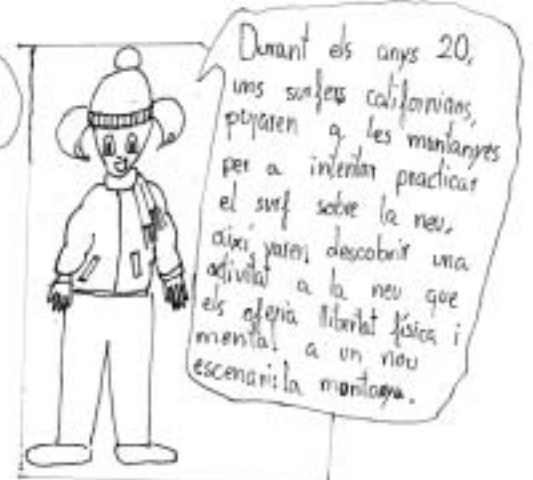 Durant els anys 20,
uns surfers californians,
pujaren a les muntanyes
per a intentar practicar
el surf sobre la neu,
així varen descobrir una
activitat a la neu que
els oferia llibertat física i
mental a un nou
escenari: la muntanya.